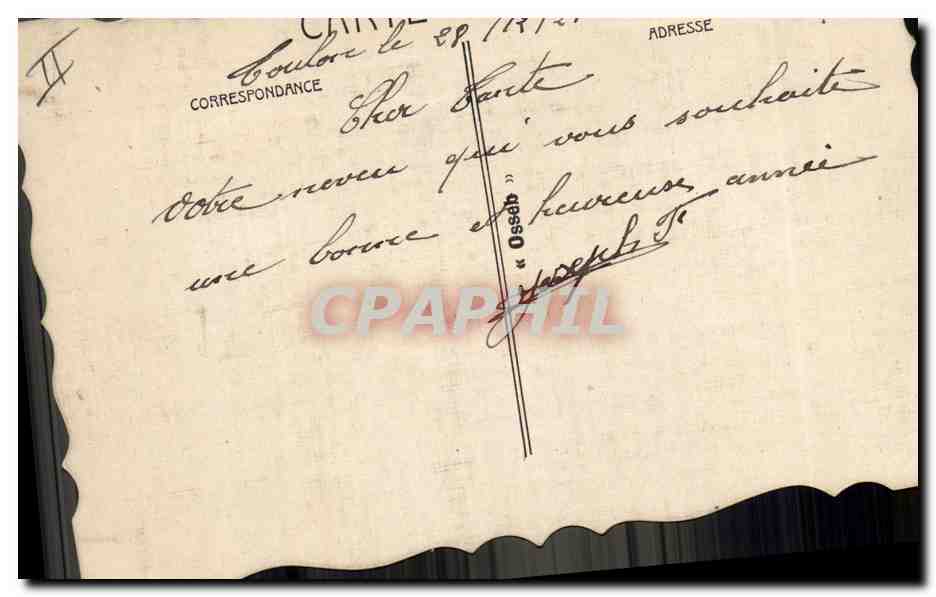 CARTE
ADRESSE
II
Toulon le 28/12/
CORRESPONDANCE
Cher Tante
votre neveu qui vous souhaite
une bonne et heureuse année
Joseph F
« Osseb »
CPAPHIL